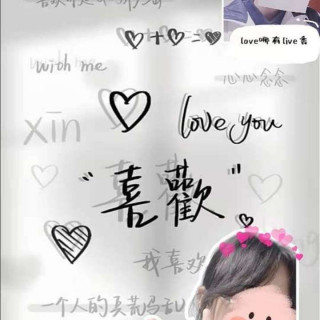 ♡+♡=♡
love哪有live香
with me
心心念念
xīn
love you
"喜歡"
我喜欢
一个人的兵荒马乱